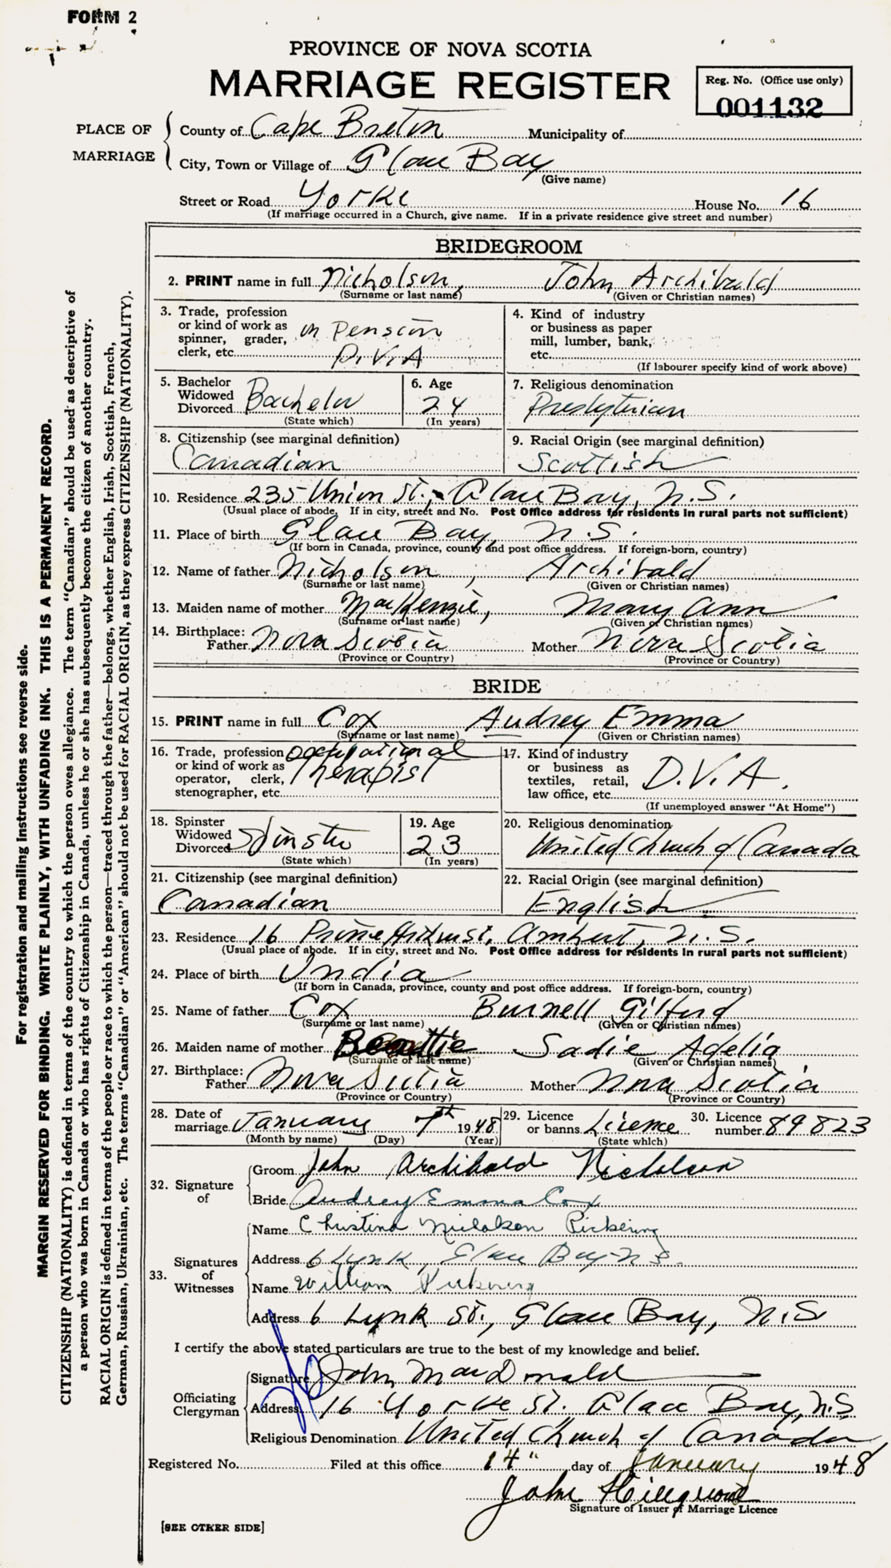 FORM 2
PROVINCE OF NOVA SCOTIA
MARRIAGE REGISTER
Reg. No. (Office use only)
001132
PLACE OF MARRIAGE
County of Cape Breton Municipality of
City, Town or Village of Glace Bay
(Give name)
Street or Road Yorke House No. 16
(If marriage occurred in a Church, give name. If in a private residence give street and number)
BRIDEGROOM
2. PRINT name in full Nicholson, John Archibald
(Surname or last name) (Given or Christian names)
3. Trade, profession or kind of work as spinner, grader, clerk, etc. on Pension D.V.A
4. Kind of industry or business as paper mill, lumber, bank, etc.
(If labourer specify kind of work above)
5. Bachelor Widowed Divorced Bachelor
(State which)
6. Age 24
(In years)
7. Religious denomination
Presbyterian
8. Citizenship (see marginal definition)
Canadian
9. Racial Origin (see marginal definition)
Scottish
10. Residence 235 Union St., Glace Bay, N.S.
(Usual place of abode. If in city, street and No. Post Office address for residents in rural parts not sufficient)
11. Place of birth Glace Bay, N.S.
(If born in Canada, province, county and post office address. If foreign-born, country)
12. Name of father Nicholson, Archibald
(Surname or last name) (Given or Christian names)
13. Maiden name of mother MacKenzie, Mary Ann
(Surname or last name) (Given or Christian names)
14. Birthplace: Father Nova Scotia Mother Nova Scotia
(Province or Country) (Province or Country)
BRIDE
15. PRINT name in full Cox Audrey Emma
(Surname or last name) (Given or Christian names)
16. Trade, profession or kind of work as operator, clerk, stenographer, etc. occupational Therapist
17. Kind of industry or business as textiles, retail, law office, etc. D.V.A.
(If unemployed answer "At Home")
18. Spinster Widowed Divorced Spinster
(State which)
19. Age 23
(In years)
20. Religious denomination
United Church of Canada
21. Citizenship (see marginal definition)
Canadian
22. Racial Origin (see marginal definition)
English
23. Residence 16 St., Amherst, N.S.
(Usual place of abode. If in city, street and No. Post Office address for residents in rural parts not sufficient)
24. Place of birth India
(If born in Canada, province, county and post office address. If foreign-born, country)
25. Name of father Cox Burnell Gilford
(Surname or last name) (Given or Christian names)
26. Maiden name of mother Sadie Adelia
(Surname or last name) (Given or Christian names)
27. Birthplace: Father Nova Scotia Mother Nova Scotia
(Province or Country) (Province or Country)
28. Date of marriage January 7th 1948
(Month by name) (Day) (Year)
29. Licence or banns License
(State which)
30. Licence number 89823
32. Signature of
Groom John Archibald Nicholson
Bride Audrey Emma Cox
33. Signatures of Witnesses
Name Christina Nicholson Pickering
Address 6 Lynk, Glace Bay N.S.
Name William Pickering
Address 6 Lynk St., Glace Bay, N.S
I certify the above stated particulars are true to the best of my knowledge and belief.
Officiating Clergyman
Signature John MacDonald
Address 16 Yorke St. Glace Bay, N.S.
Religious Denomination United Church of Canada
Registered No. Filed at this office 14" day of January 1948
John
Signature of Issuer of Marriage Licence
[SEE OTHER SIDE]
For registration and mailing instructions see reverse side.
MARGIN RESERVED FOR BINDING. WRITE PLAINLY, WITH UNFADING INK. THIS IS A PERMANENT RECORD.
CITIZENSHIP (NATIONALITY) is defined in terms of the country to which the person owes allegiance. The term "Canadian" should be used as descriptive of
a person who was born in Canada or who has rights of Citizenship in Canada, unless he or she has subsequently become the citizen of another country.
RACIAL ORIGIN is defined in terms of the people or race to which the person—traced through the father—belongs, whether English, Irish, Scottish, French,
German, Russian, Ukrainian, etc. The terms "Canadian" or "American" should not be used for RACIAL ORIGIN, as they express CITIZENSHIP (NATIONALITY).